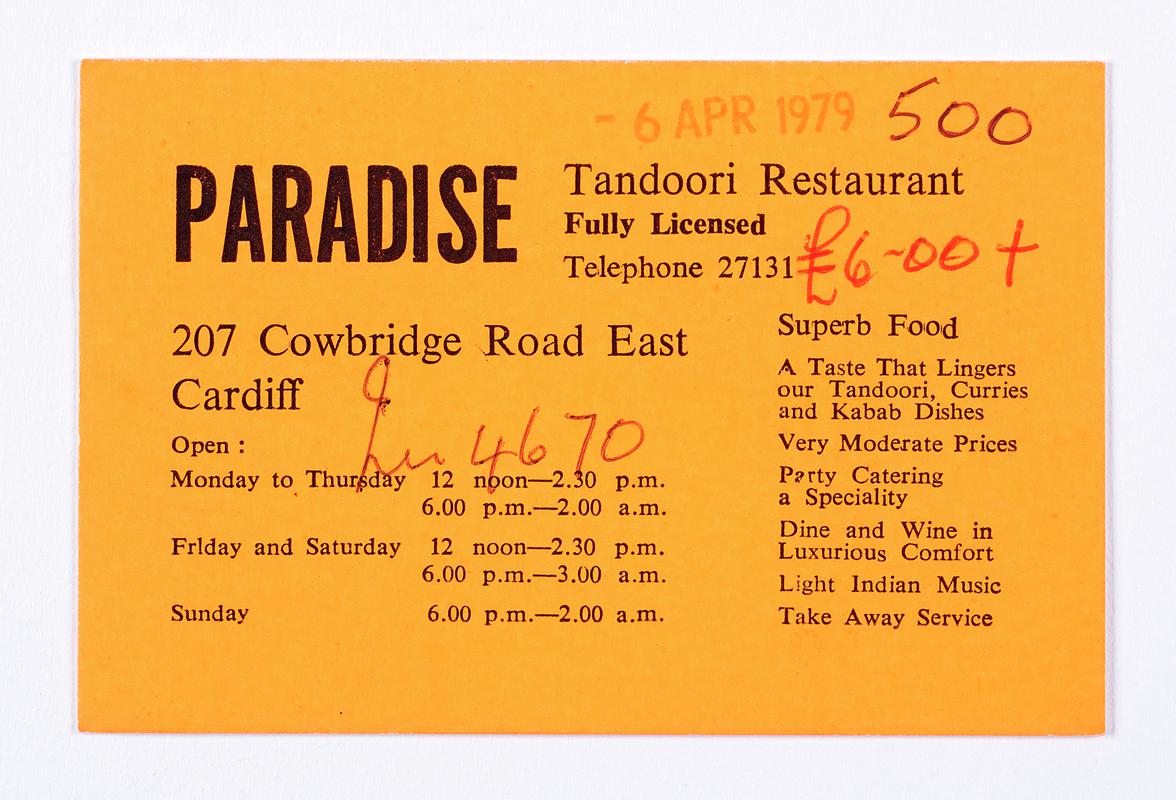 - 6 APR 1979 500
PARADISE
Tandoori Restaurant
Fully Licensed
Telephone 27131
£6-00 +
207 Cowbridge Road East
Cardiff
4670
Open :
Monday to Thursday 12 noon—2.30 p.m.
6.00 p.m.—2.00 a.m.
Frlday and Saturday 12 noon—2.30 p.m.
6.00 p.m.—3.00 a.m.
Sunday 6.00 p.m.—2.00 a.m.
Superb Food
A Taste That Lingers
our Tandoori, Curries
and Kabab Dishes
Very Moderate Prices
Party Catering
a Speciality
Dine and Wine in
Luxurious Comfort
Light Indian Music
Take Away Service